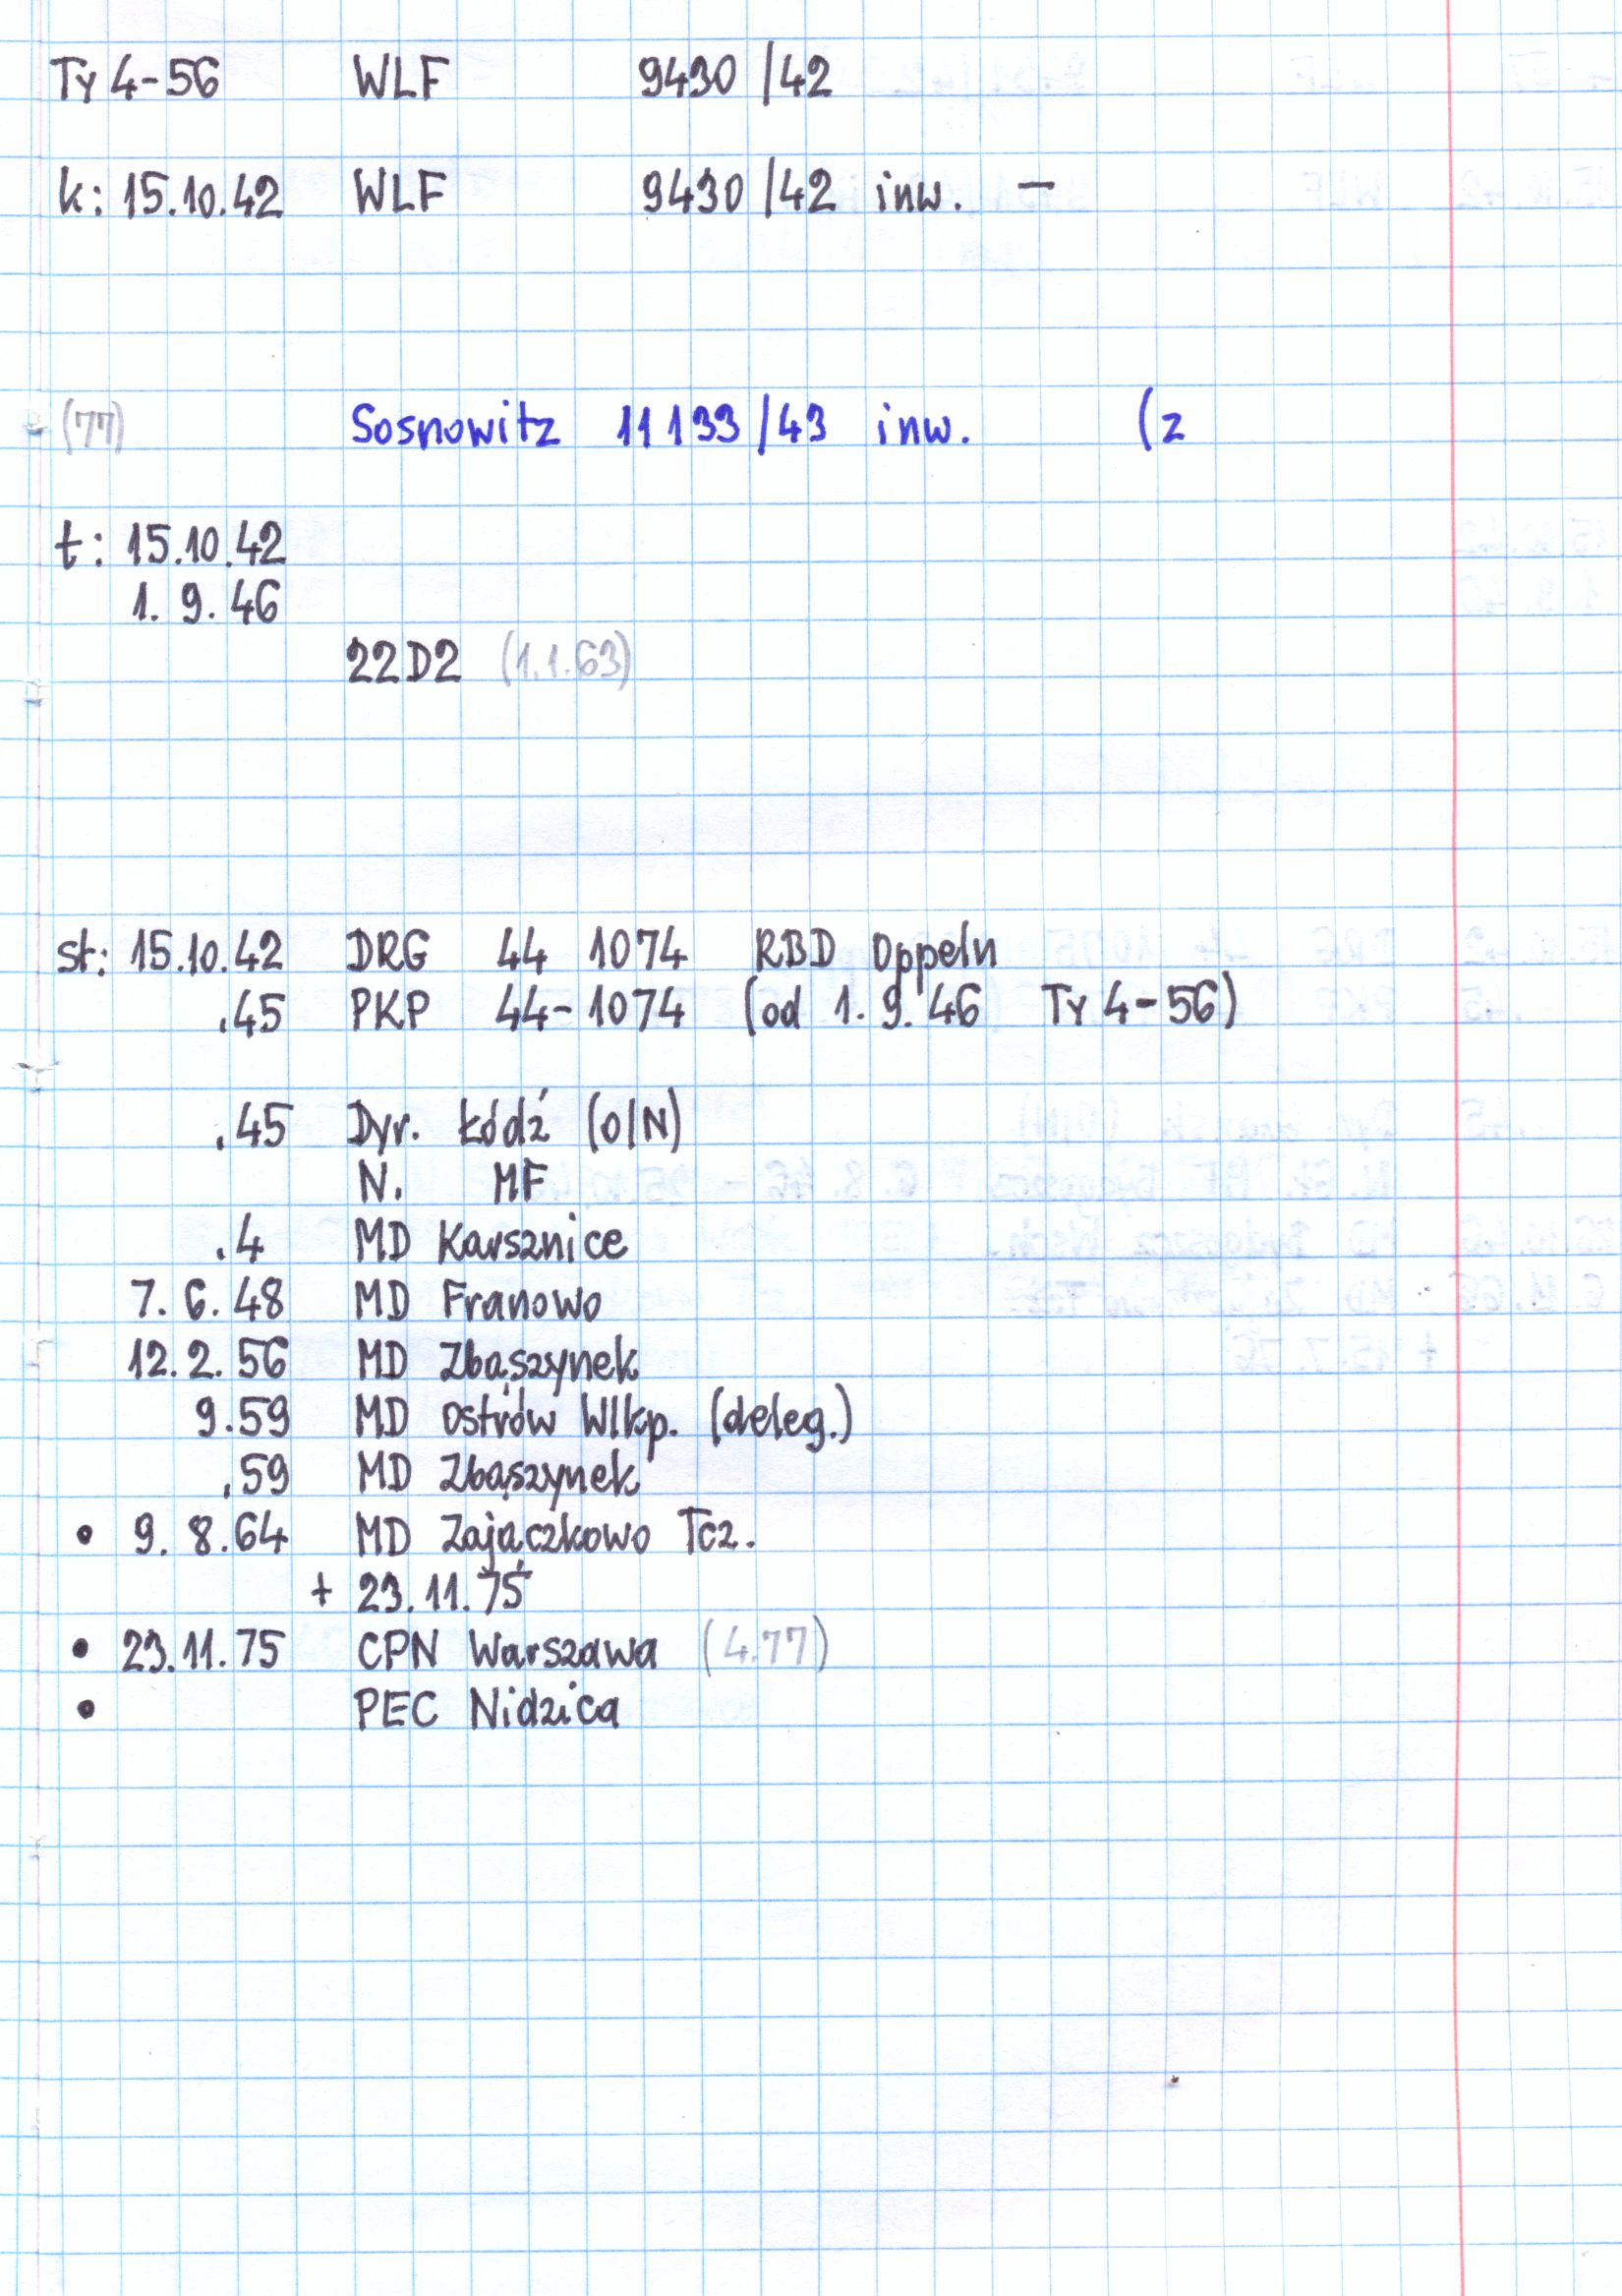 Ty 4-56 WLF 9430/42
k: 15.10.42 WLF 9430/42 inw. –
(77) Sosnowitz 11133/43 inw. (z
t: 15.10.42
1. 9. 46
22D2 (1.1.63)
st: 15.10.42 DRG 44 1074 RBD Oppeln
.45 PKP 44-1074 (od 1. 9. 46 Ty 4-56)
.45 Dyr. Łódź (O/N)
N. MF
.4 MD Karsznice
7. 6. 48 MD Franowo
12. 2. 56 MD Zbąszynek
9.59 MD Ostrów Wlkp. (deleg.)
.59 MD Zbąszynek
• 9. 8.64 MD Zajączkowo Tcz.
+ 23.11.75
• 23.11.75 CPN Warszawa (4.77)
• PEC Nidzica